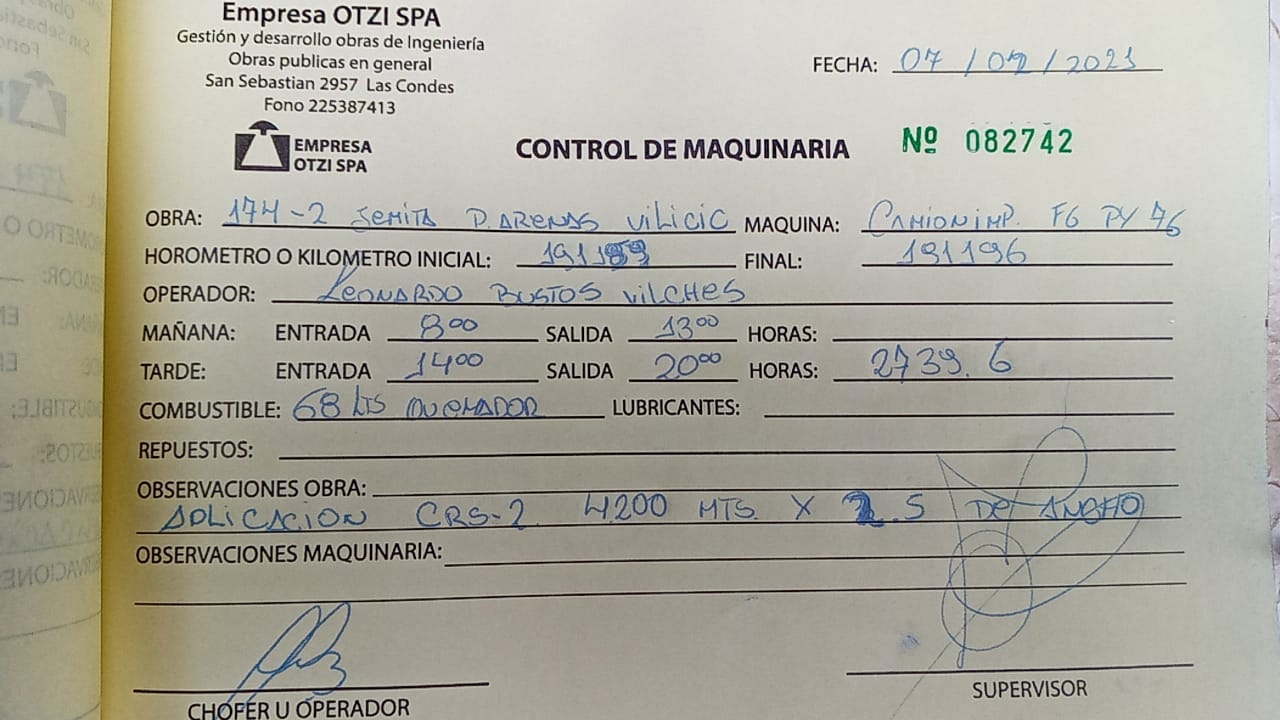 Empresa OTZI SPA
Gestión y desarrollo obras de Ingeniería
Obras publicas en general
San Sebastian 2957 Las Condes
Fono 225387413
FECHA: 07 / 02 / 2023
EMPRESA
OTZI SPA
CONTROL DE MAQUINARIA Nº 082742
OBRA: 174-2 SEMITA P. ARENAS VILICIC MAQUINA: CAMION IMP. FG PY 76
HOROMETRO O KILOMETRO INICIAL: 191189 FINAL: 191196
OPERADOR: LEONARDO BUSTOS VILCHES
MAÑANA: ENTRADA 8⁰⁰ SALIDA 13⁰⁰ HORAS:
TARDE: ENTRADA 14⁰⁰ SALIDA 20⁰⁰ HORAS: 2739.6
COMBUSTIBLE: 68 LTS QUEMADOR LUBRICANTES:
REPUESTOS:
OBSERVACIONES OBRA:
APLICACION CRS-2 4200 MTS. X 2.5 DE ANCHO
OBSERVACIONES MAQUINARIA:
CHOFER U OPERADOR
SUPERVISOR